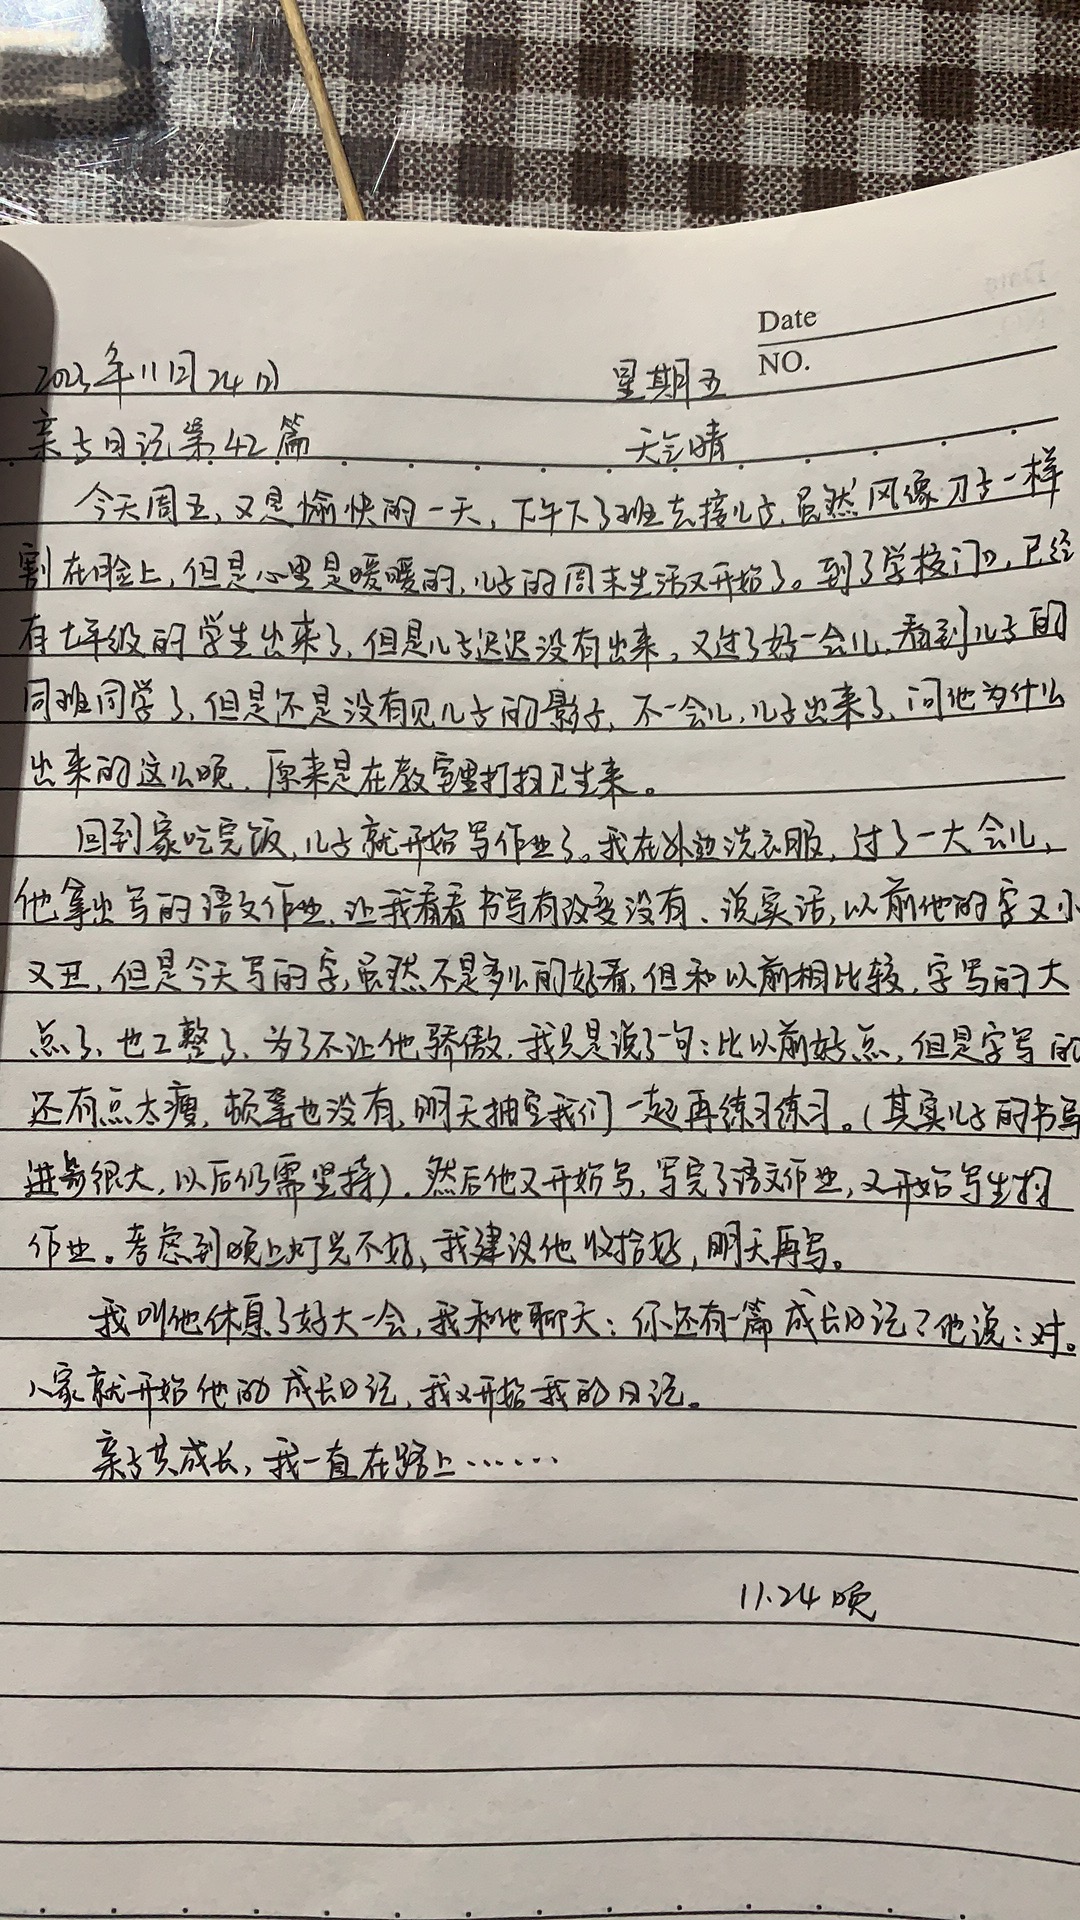 Date
2023年11月24日 星期五 NO.
亲子日记第42篇 天气晴
今天周五,又是愉快的一天,下午下了班去接儿子,虽然风像刀子一样
割在脸上,但是心里是暖暖的,儿子的周末生活又开始了。到了学校门口,已经
有七年级的学生出来了,但是儿子迟迟没有出来,又过了好一会儿,看到儿子的
同班同学了,但是还是没有见儿子的影子,不一会儿,儿子出来了,问他为什么
出来的这么晚,原来是在教室里打扫卫生来。
回到家吃完饭,儿子就开始写作业了。我在外边洗衣服,过了一大会儿,
他拿出写的语文作业,让我看看书写有改变没有、说实话,以前他的字又小
又丑,但是今天写的字,虽然不是多么的好看,但和以前相比较,字写的大
点了,也工整了,为了不让他骄傲,我只是说了句:比以前好点,但是字写的
还有点太瘦,顿笔也没有,明天抽空我们一起再练习练习。(其实儿子的书写
进步很大,以后仍需坚持)。然后他又开始写,写完了语文作业,又开始写生物
作业。考虑到晚上灯光不好,我建议他收拾好,明天再写。
我叫他休息了好大一会,我和他聊天:你还有一篇成长日记?他说:对。
人家就开始他的成长日记,我又开始我的日记。
亲子共成长,我一直在路上……
11.24晚